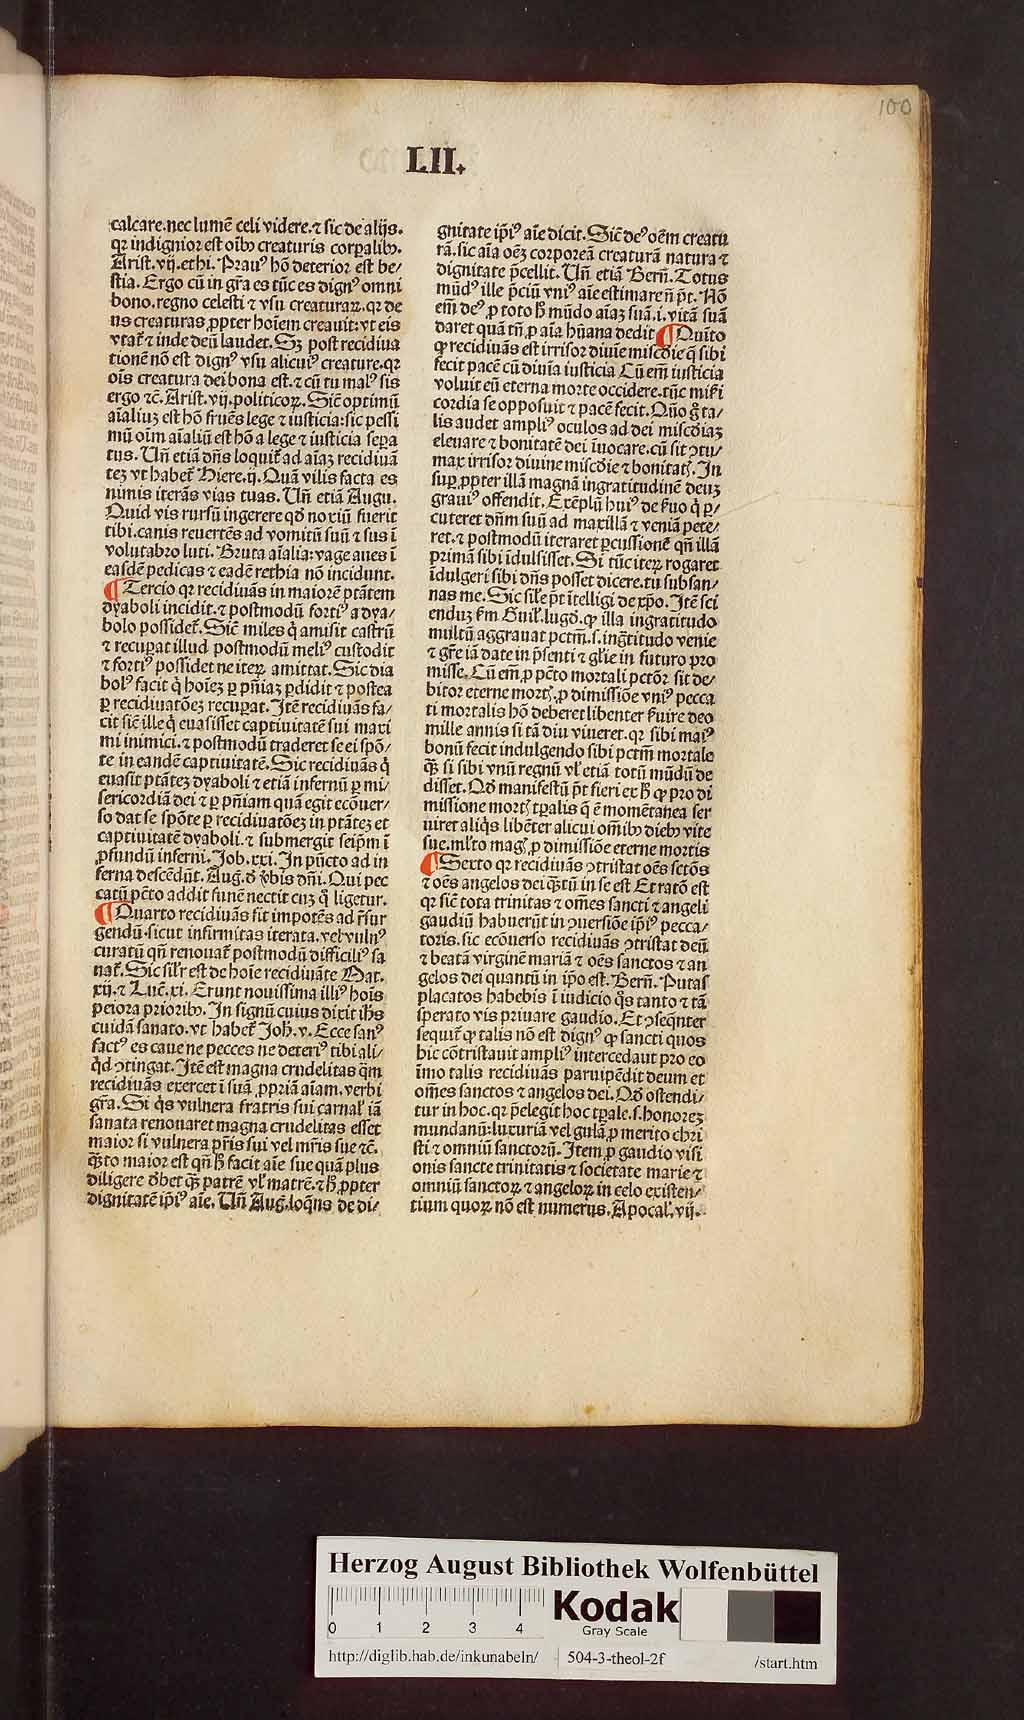 100
LII.
calcare.nec lumē celi videre.⁊ sic de alijs.
qꝛ indignior est oībꝰ creaturis corꝑalibꝰ.
Arist.vij.ethi. Prauꝰ hō deterior est be/
stia. Ergo cū in gr̄a es tūc es dignꝰ omni
bono.regno celesti ⁊ vsu creaturaꝝ.qꝛ de
us creaturas ꝓpter hoīem creauit:vt eis
vtat᷑ ⁊ inde deū laudet. Sꝫ post recidiua
tionē nō est dignꝰ vsu alicuiꝰ creature.qꝛ
oīs creatura dei bona est.⁊ cū tu malꝰ sis
ergo ⁊c̄. Arist.vij.politicoꝝ. Sic̄ optimū
aīaliuꝫ est hō fruēs lege ⁊ iusticia:sic pessi
mū oīm aīaliū est hō a lege ⁊ iusticia seꝑa
tus. Vn̄ etiā dn̄s loquit᷑ ad aīaꝫ recidiuā
teꝫ vt habet᷑ Hiere.ij. Quā vilis facta es
nimis iterās vias tuas. Vn̄ etiā Augu.
Quid vis rursū ingerere qd̄ noxiū fuerit
tibi.canis reuertēs ad vomitū suū ⁊ sus ī
volutabro luti. Bruta aīalia:vage aues ī
easdē pedicas ⁊ eadē rethia nō incidunt.
¶ Tercio qꝛ recidiuās in maiorē ptātem
dyaboli incidit.⁊ postmodū fortiꝰ a dya/
bolo possidet᷑. Sic̄ miles q̇ amisit castrū
⁊ recuꝑat illud postmodū meliꝰ custodit
⁊ fortiꝰ possidet ne iteꝝ amittat. Sic dia
bolꝰ facit q̇ hoīeꝫ ꝑ pn̄iaꝫ ꝑdidit ⁊ postea
ꝑ recidiuatōeꝫ recuꝑat. Itē recidiuās fa/
cit sic̄ ille q̇ euasisset captiuitatē sui maxi
mi inimici.⁊ postmodū traderet se ei spō/
te in eandē captiuitatē. Sic recidiuās q̇
euasit ptāteꝫ dyaboli ⁊ etiā infernū ꝑ mi/
sericordiā dei ⁊ ꝑ pn̄iam quā egit ecōuer/
so dat se spōte ꝑ recidiuatōeꝫ in ptāteꝫ et
captiuitatē dyaboli.⁊ submergit seip̄m ī
ꝓfundū inferni. Job.xxi. In pūcto ad in
ferna descēdūt. Aug.d̄ v̄bis dn̄i. Qui pec
catū pc̄to addit funē nectit cuꝫ q̇ ligetur.
¶ Quarto recidiuās fit impotēs ad r̄sur
gendū.sicut infirmitas iterata.vel vulnꝰ
curatū qn̄ renouat᷑ postmodū difficiliꝰ sa
nat᷑. Sic sil̄r est de hoīe recidiuāte Mat.
xij.⁊ Luē.xi. Erunt nouissima illiꝰ hoīs
peiora prioribꝰ. In signū cuius dixit ih̄s
cuidā sanato.vt habet᷑ Joh̄.v. Ecce sanꝰ
factꝰ es caue ne pecces ne deteriꝰ tibi ali/
q̇d ꝯtingat. Itē est magna crudelitas q̄m
recidiuās exercet ī suā ꝓpriā aīam.verbi
gr̄a. Si q̇s vulnera fratris sui carnal᷑ iā
sanata renouaret magna crudelitas esset
maior si vulnera pr̄is sui vel mr̄is sue ⁊c̄.
q̄ꝫto maior est qn̄ hꝰ facit aīe sue quā plus
diligere d̄bet q̄ꝫ patrē vl᷑ matrē.⁊ hꝰ ꝓpter
dignitatē ip̄iꝰ aīe. Vn̄ Aug.loq̄ns de di/
gnitate ip̄iꝰ aīe dicit. Sic̄ deꝰ oēm creatu
rā.sic aīa oēꝫ corporeā creaturā natura ⁊
dignitate p̄cellit. Vn̄ etiā Bern̄. Totus
mūdꝰ ille p̄ciū vniꝰ aīe estimare n̄ pt̄. Nō
em̄ deꝰ ꝓ toto hꝰ mūdo aīaꝫ suā.i.vitā suā
daret quā tn̄ ꝓ aīa hūana dedit ¶ Quīto
ꝙ recidiuās est irrisor diuīe misc̄die q̇ sibi
fecit pacē cū diuīa iusticia Cū em̄ iusticia
voluit eū eterna morte occidere.tūc miẜi
cordia se opposuit ⁊ pacē fecit. Quō gͦ ta/
lis audet ampliꝰ oculos ad dei misc̄diaꝫ
eleuare ⁊ bonitatē dei īuocare.cū sit ꝯtu/
max irrisor diuine misc̄die ⁊ bonitatꝭ. In
suꝑ.ꝓpter illā magnā ingratitudinē deuꝫ
grauiꝰ offendit. Exēplū huiꝰ de ẜuo q̇ ꝑ/
cuteret dn̄m suū ad maxillā ⁊ veniā pete/
ret.⁊ postmodū iteraret ꝑcussionē qn̄ illā
primā sibi īdulsisset. Si tūc iteꝝ rogaret
īdulgeri sibi dn̄s posset dicere.tu subsan/
nas me. Sic sil̄e pt̄ ītelligi de xp̄o. Itē sci
enduꝫ ẜm Guil̄.lugd̄.ꝙ illa ingratitudo
multū aggrauat pctm̄.s.ingr̄titudo venie
⁊ gr̄e iā date in p̄senti ⁊ gl̄ie in futuro pro
misse. Cū em̄ ꝓ pc̄to mortali pctōr sit de/
bitor eterne mortꝭ.ꝓ dimissiōe vniꝰ pecca
ti mortalis hō deberet libenter ẜuire deo
mille annis si tā diu viueret.qꝛ sibi maiꝰ
bonū fecit indulgendo sibi pctm̄ mortale
q̄ꝫ si sibi vnū regnū vl᷑ etiā totū mūdū de
disset. Qd̄ manifestū pt̄ fieri ex hꝰ ꝙ pro di
missione mortꝭ tꝑalis q̄ ē momētanea ser
uiret aliq̇s libēter alicui om̄ibꝰ diebꝰ vite
sue.ml̄to magꝭ ꝓ dimissiōe eterne mortis
¶ Sexto qꝛ recidiuās ꝯtristat oēs sctōs
⁊ oēs angelos dei q̄ꝫtū in se est Et ratō est
qꝛ sic̄ tota trinitas ⁊ om̄es sancti ⁊ angeli
gaudiū habuerūt in ꝯuersiōe ip̄iꝰ pecca/
toris.sic ecōuerso recidiuās ꝯtristat deū
⁊ beatā virginē mariā ⁊ oēs sanctos ⁊ an
gelos dei quantū in ip̄o est. Bern̄. Putas
placatos habebis ī iudicio q̇s tanto ⁊ tā
sperato vis priuare gaudio. Et ꝯseq̄nter
sequit᷑ ꝙ talis nō est dignꝰ ꝙ sancti quos
hic cōtristauit ampliꝰ intercedant pro eo
īmo talis recidiuās paruipēdit deum et
om̄es sanctos ⁊ angelos dei. Qd̄ ostendi/
tur in hoc.qꝛ p̄elegit hoc tꝑale.s.honoreꝫ
mundanū:luxuriā vel gulā.ꝓ merito chri
sti ⁊ omniū sanctorū. Item ꝓ gaudio visi
onis sancte trinitatis ⁊ societate marie ⁊
omniū sanctoꝝ.⁊ angeloꝝ in celo existen/
tium quoꝝ nō est numerus. Apocal᷑.vij.
Herzog August Bibliothek Wolfenbüttel
0 1 2 3 4
Kodak
Gray Scale
http://diglib.hab.de/inkunabeln/ 504-3-theol-2f /start.htm